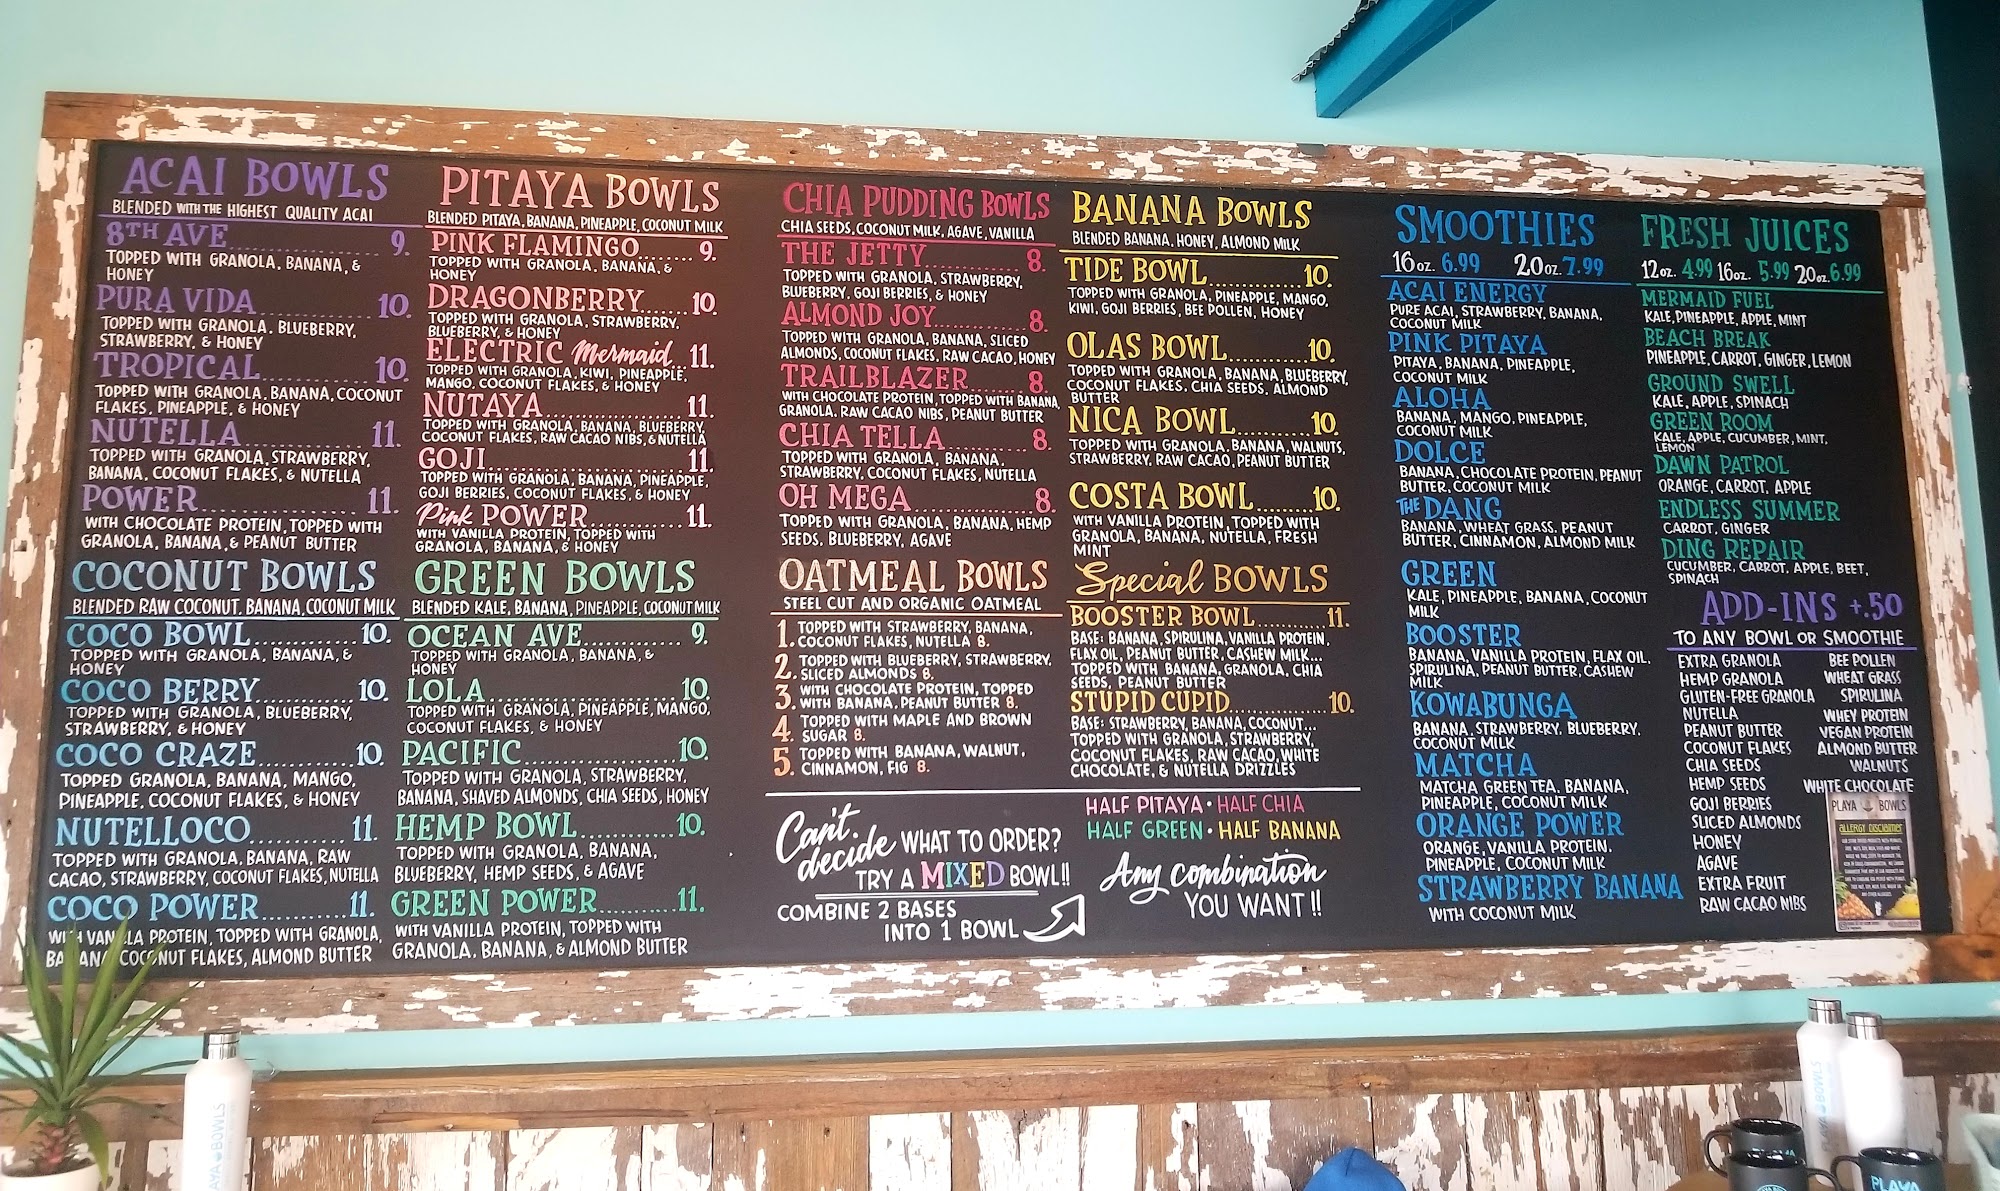 ACAI BOWLS
BLENDED WITH THE HIGHEST QUALITY ACAI
8TH AVE.................... 9.
TOPPED WITH GRANOLA, BANANA, &
HONEY
PURA VIDA.................... 10.
TOPPED WITH GRANOLA, BLUEBERRY,
STRAWBERRY, & HONEY
TROPICAL.................... 10.
TOPPED WITH GRANOLA, BANANA, COCONUT
FLAKES, PINEAPPLE, & HONEY
NUTELLA.................... 11.
TOPPED WITH GRANOLA, STRAWBERRY,
BANANA, COCONUT FLAKES, & NUTELLA
POWER.................... 11.
WITH CHOCOLATE PROTEIN, TOPPED WITH
GRANOLA, BANANA, & PEANUT BUTTER
COCONUT BOWLS
BLENDED RAW COCONUT, BANANA, COCONUT MILK
COCO BOWL............ 10.
TOPPED WITH GRANOLA, BANANA, &
HONEY
COCO BERRY............ 10.
TOPPED WITH GRANOLA, BLUEBERRY,
STRAWBERRY, & HONEY
COCO CRAZE............ 10.
TOPPED GRANOLA, BANANA, MANGO,
PINEAPPLE, COCONUT FLAKES, & HONEY
NUTELLOCO............ 11.
TOPPED WITH GRANOLA, BANANA, RAW
CACAO, STRAWBERRY, COCONUT FLAKES, NUTELLA
COCO POWER............ 11.
WITH VANILLA PROTEIN, TOPPED WITH GRANOLA,
BANANA, COCONUT FLAKES, ALMOND BUTTER
PITAYA BOWLS
BLENDED PITAYA, BANANA, PINEAPPLE, COCONUT MILK
PINK FLAMINGO....... 9.
TOPPED WITH GRANOLA, BANANA, &
HONEY
DRAGONBERRY...... 10.
TOPPED WITH GRANOLA, STRAWBERRY,
BLUEBERRY, & HONEY
ELECTRIC Mermaid.. 11.
TOPPED WITH GRANOLA, KIWI, PINEAPPLE,
MANGO, COCONUT FLAKES, & HONEY
NUTAYA.................. 11.
TOPPED WITH GRANOLA, BANANA, BLUEBERRY,
COCONUT FLAKES, RAW CACAO NIBS, & NUTELLA
GOJI........................ 11.
TOPPED WITH GRANOLA, BANANA, PINEAPPLE,
GOJI BERRIES, COCONUT FLAKES, & HONEY
Pink POWER............ 11.
WITH VANILLA PROTEIN, TOPPED WITH
GRANOLA, BANANA, & HONEY
GREEN BOWLS
BLENDED KALE, BANANA, PINEAPPLE, COCONUT MILK
OCEAN AVE............ 9.
TOPPED WITH GRANOLA, BANANA, &
HONEY
LOLA...................... 10.
TOPPED WITH GRANOLA, PINEAPPLE, MANGO,
COCONUT FLAKES, & HONEY
PACIFIC.................. 10.
TOPPED WITH GRANOLA, STRAWBERRY,
BANANA, SHAVED ALMONDS, CHIA SEEDS, HONEY
HEMP BOWL............ 10.
TOPPED WITH GRANOLA, BANANA,
BLUEBERRY, HEMP SEEDS, & AGAVE
GREEN POWER.......... 11.
WITH VANILLA PROTEIN, TOPPED WITH
GRANOLA, BANANA, & ALMOND BUTTER
CHIA PUDDING BOWLS
CHIA SEEDS, COCONUT MILK, AGAVE, VANILLA
THE JETTY............. 8.
TOPPED WITH GRANOLA, STRAWBERRY,
BLUEBERRY, GOJI BERRIES, & HONEY
ALMOND JOY............ 8.
TOPPED WITH GRANOLA, BANANA, SLICED
ALMONDS, COCONUT FLAKES, RAW CACAO, HONEY
TRAILBLAZER....... 8.
WITH CHOCOLATE PROTEIN, TOPPED WITH BANANA,
GRANOLA, RAW CACAO NIBS, PEANUT BUTTER
CHIA TELLA.......... 8.
TOPPED WITH GRANOLA, BANANA,
STRAWBERRY, COCONUT FLAKES, NUTELLA
OH MEGA............... 8.
TOPPED WITH GRANOLA, BANANA, HEMP
SEEDS, BLUEBERRY, AGAVE
OATMEAL BOWLS
STEEL CUT AND ORGANIC OATMEAL
1. TOPPED WITH STRAWBERRY, BANANA,
COCONUT FLAKES, NUTELLA 8.
2. TOPPED WITH BLUEBERRY, STRAWBERRY,
SLICED ALMONDS 8.
3. WITH CHOCOLATE PROTEIN, TOPPED
WITH BANANA, PEANUT BUTTER 8.
4. TOPPED WITH MAPLE AND BROWN
SUGAR 8.
5. TOPPED WITH BANANA, WALNUT,
CINNAMON, FIG 8.
BANANA BOWLS
BLENDED BANANA, HONEY, ALMOND MILK
TIDE BOWL............ 10.
TOPPED WITH GRANOLA, PINEAPPLE, MANGO,
KIWI, GOJI BERRIES, BEE POLLEN, HONEY
OLAS BOWL.......... 10.
TOPPED WITH GRANOLA, BANANA, BLUEBERRY,
COCONUT FLAKES, CHIA SEEDS, ALMOND
BUTTER
NICA BOWL.......... 10.
TOPPED WITH GRANOLA, BANANA, WALNUTS,
STRAWBERRY, RAW CACAO, PEANUT BUTTER
COSTA BOWL........ 10.
WITH VANILLA PROTEIN, TOPPED WITH
GRANOLA, BANANA, NUTELLA, FRESH
MINT
Special BOWLS
BOOSTER BOWL........... 11.
BASE: BANANA, SPIRULINA, VANILLA PROTEIN,
FLAX OIL, PEANUT BUTTER, CASHEW MILK...
TOPPED WITH BANANA, GRANOLA, CHIA
SEEDS, PEANUT BUTTER
STUPID CUPID............... 10.
BASE: STRAWBERRY, BANANA, COCONUT...
TOPPED WITH GRANOLA, STRAWBERRY,
COCONUT FLAKES, RAW CACAO, WHITE
CHOCOLATE, & NUTELLA DRIZZLES
Can't decide WHAT TO ORDER?
TRY A MIXED BOWL!!
COMBINE 2 BASES
INTO 1 BOWL
HALF PITAYA • HALF CHIA
HALF GREEN • HALF BANANA
Any combination
YOU WANT!!
SMOOTHIES
16 OZ. 6.99 20 OZ. 7.99
ACAI ENERGY
PURE ACAI, STRAWBERRY, BANANA,
COCONUT MILK
PINK PITAYA
PITAYA, BANANA, PINEAPPLE,
COCONUT MILK
ALOHA
BANANA, MANGO, PINEAPPLE,
COCONUT MILK
DOLCE
BANANA, CHOCOLATE PROTEIN, PEANUT
BUTTER, COCONUT MILK
THE DANG
BANANA, WHEAT GRASS, PEANUT
BUTTER, CINNAMON, ALMOND MILK
GREEN
KALE, PINEAPPLE, BANANA, COCONUT
MILK
BOOSTER
BANANA, VANILLA PROTEIN, FLAX OIL,
SPIRULINA, PEANUT BUTTER, CASHEW
MILK
KOWABUNGA
BANANA, STRAWBERRY, BLUEBERRY,
COCONUT MILK
MATCHA
MATCHA GREEN TEA, BANANA,
PINEAPPLE, COCONUT MILK
ORANGE POWER
ORANGE, VANILLA PROTEIN,
PINEAPPLE, COCONUT MILK
STRAWBERRY BANANA
WITH COCONUT MILK
FRESH JUICES
12 OZ. 4.99 16 OZ. 5.99 20 OZ. 6.99
MERMAID FUEL
KALE, PINEAPPLE, APPLE, MINT
BEACH BREAK
PINEAPPLE, CARROT, GINGER, LEMON
GROUND SWELL
KALE, APPLE, SPINACH
GREEN ROOM
KALE, APPLE, CUCUMBER, MINT,
LEMON
DAWN PATROL
ORANGE, CARROT, APPLE
ENDLESS SUMMER
CARROT, GINGER
DING REPAIR
CUCUMBER, CARROT, APPLE, BEET,
SPINACH
ADD-INS +.50
TO ANY BOWL OR SMOOTHIE
EXTRA GRANOLA
HEMP GRANOLA
GLUTEN-FREE GRANOLA
NUTELLA
PEANUT BUTTER
COCONUT FLAKES
CHIA SEEDS
HEMP SEEDS
GOJI BERRIES
SLICED ALMONDS
HONEY
AGAVE
EXTRA FRUIT
RAW CACAO NIBS
BEE POLLEN
WHEAT GRASS
SPIRULINA
WHEY PROTEIN
VEGAN PROTEIN
ALMOND BUTTER
WALNUTS
WHITE CHOCOLATE
PLAYA BOWLS
ALLERGY DISCLAIMER
PLAYA BOWLS
PLAYA BOWLS
PLAYA